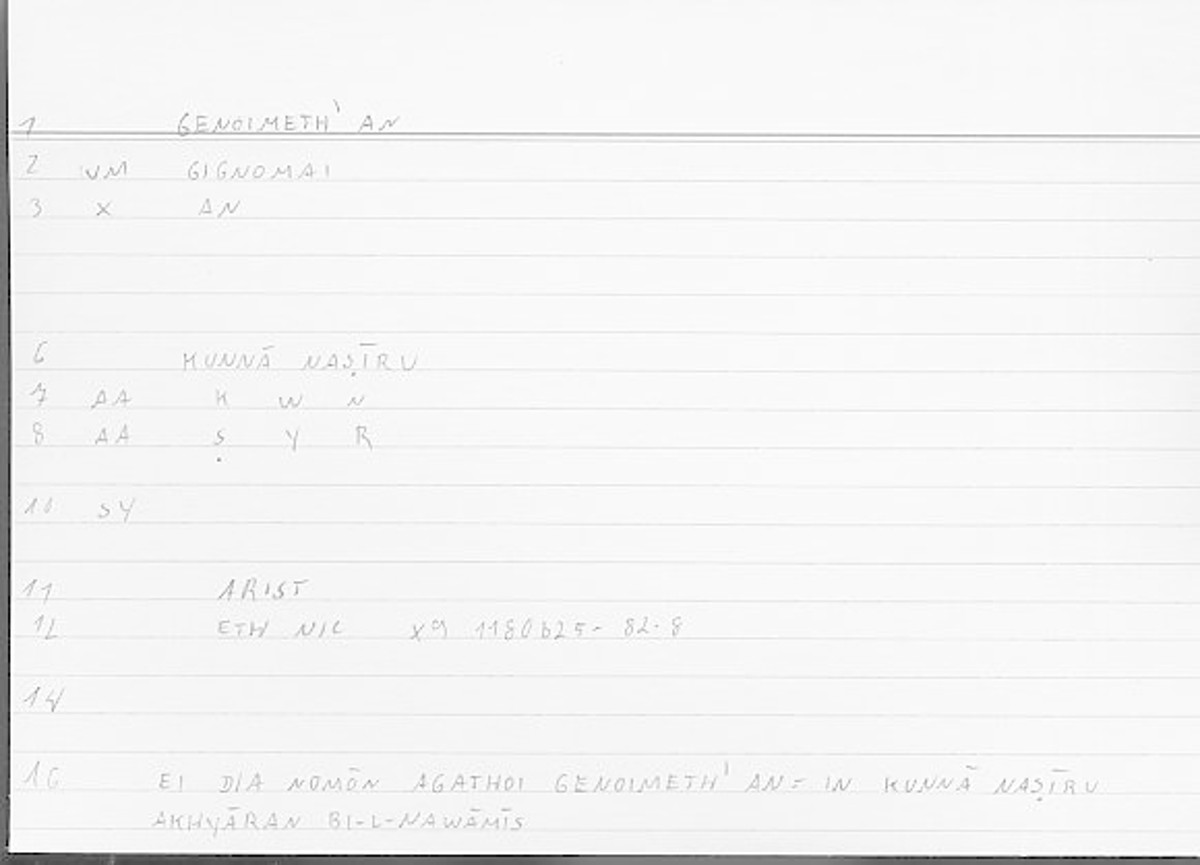 1 GENOIMETH' AN
2 VM GIGNOMAI
3 X AN
6 KUNNĀ NAṢĪRU
7 AA K W N
8 AA Ṣ Y R
10 SY
11 ARIST
12 ETH NIC X9 1180b25- 82.8
14
16 EI DIA NOMŌN AGATHOI GENOIMETH' AN = IN KUNNĀ NAṢĪRU
AKHYĀRAN BI-L-NAWĀMĪS